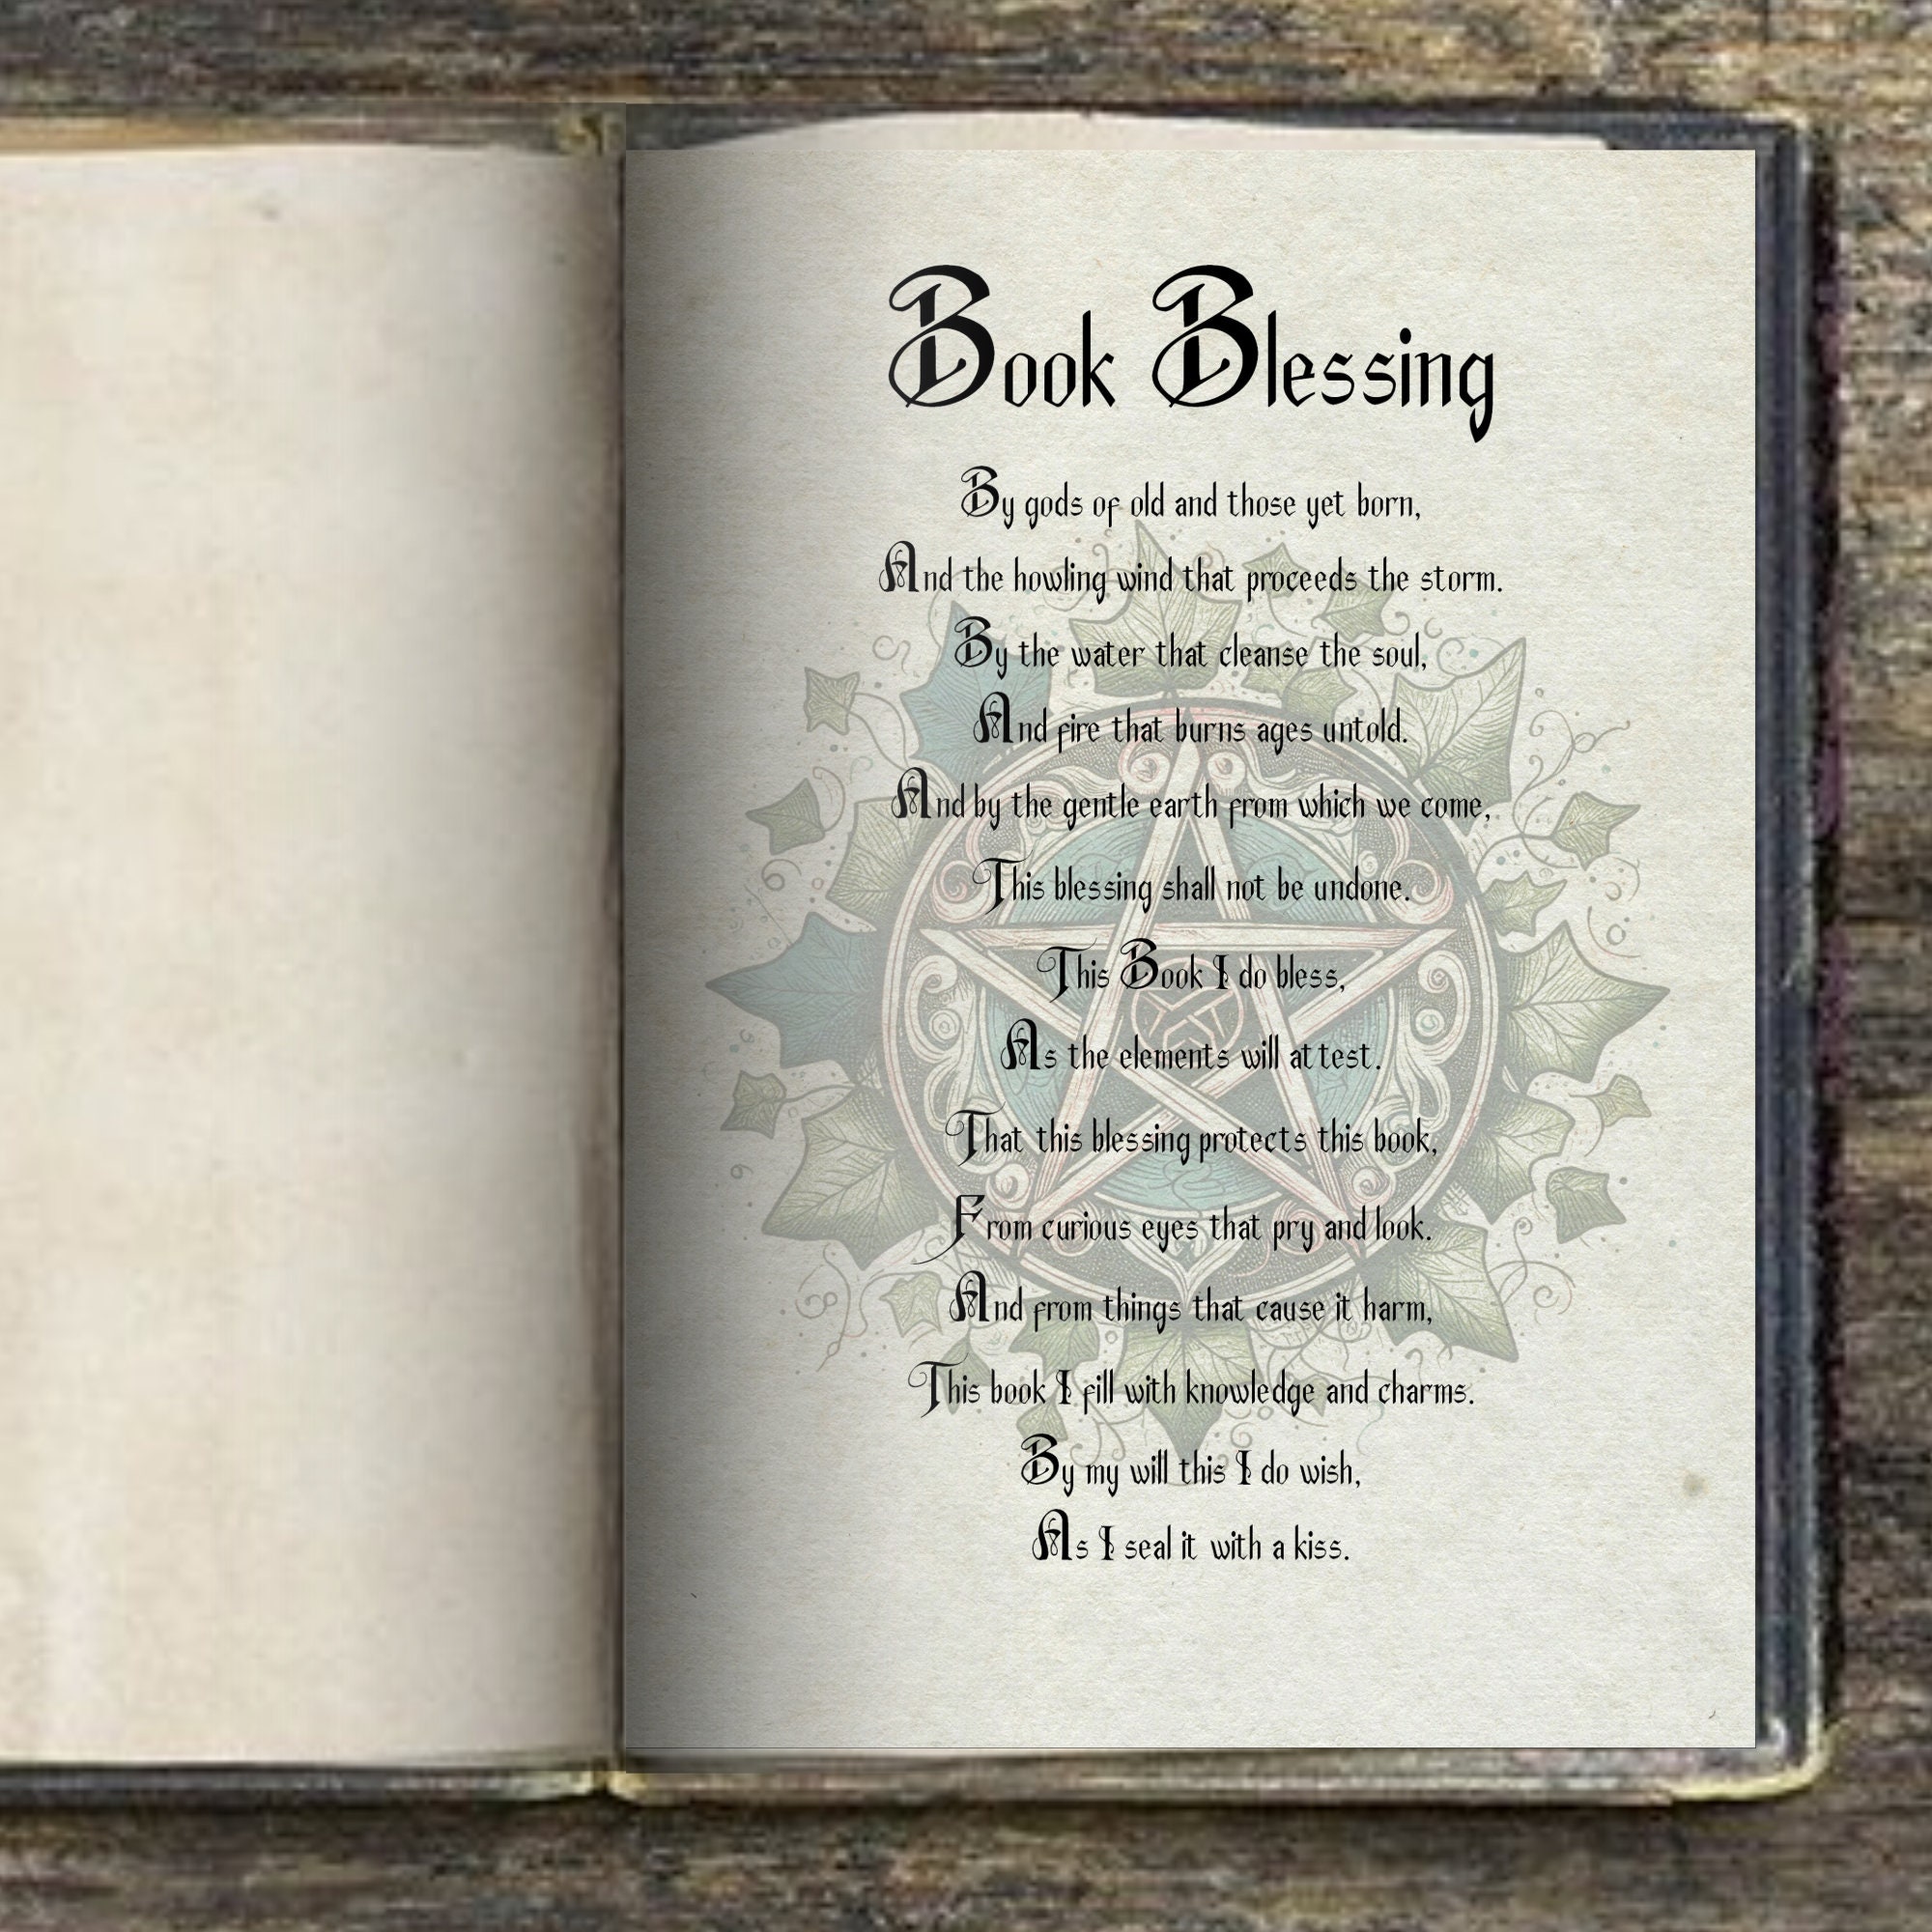 Book Blessing
By gods of old and those yet born,
And the howling wind that proceeds the storm.
By the water that cleanse the soul,
And fire that burns ages untold.
And by the gentle earth from which we come,
This blessing shall not be undone.
This Book I do bless,
As the elements will attest.
That this blessing protects this book,
From curious eyes that pry and look.
And from things that cause it harm,
This book I fill with knowledge and charms.
By my will this I do wish,
As I seal it with a kiss.